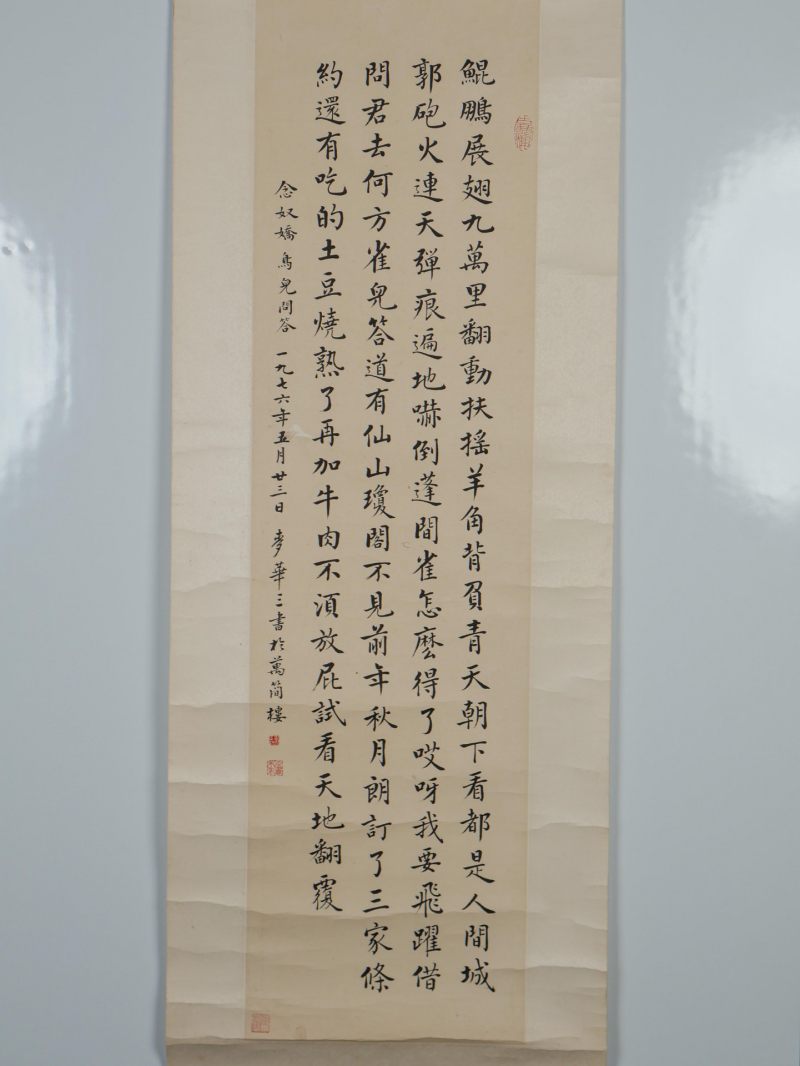 鯤鵬展翅九萬里翻動扶搖羊角背負青天朝下看都是人間城
郭砲火連天彈痕遍地嚇倒蓬間雀怎麼得了哎呀我要飛躍借
問君去何方雀兒答道有仙山瓊閣不見前年秋月朗訂了三家條
約還有吃的土豆燒熟了再加牛肉不須放屁試看天地翻覆
念奴嬌 鳥兒問答 一九七六年五月廿三日 麥華三書於萬簡樓